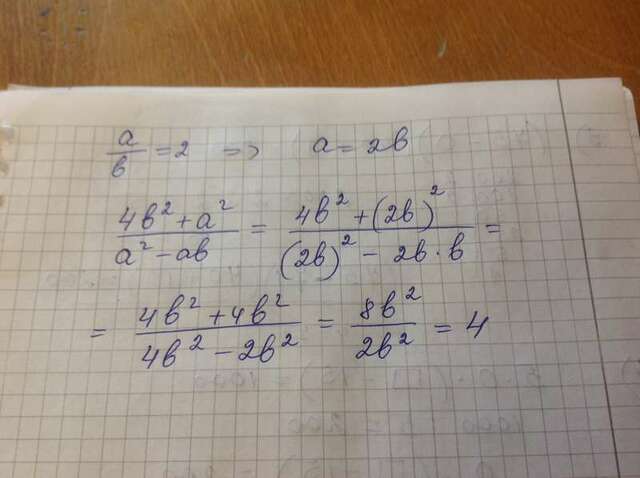 a/b = 2 => a = 2b
(4b² + a²)/(a² - ab) = (4b² + (2b)²)/((2b)² - 2b·b) =
= (4b² + 4b²)/(4b² - 2b²) = 8b²/2b² = 4